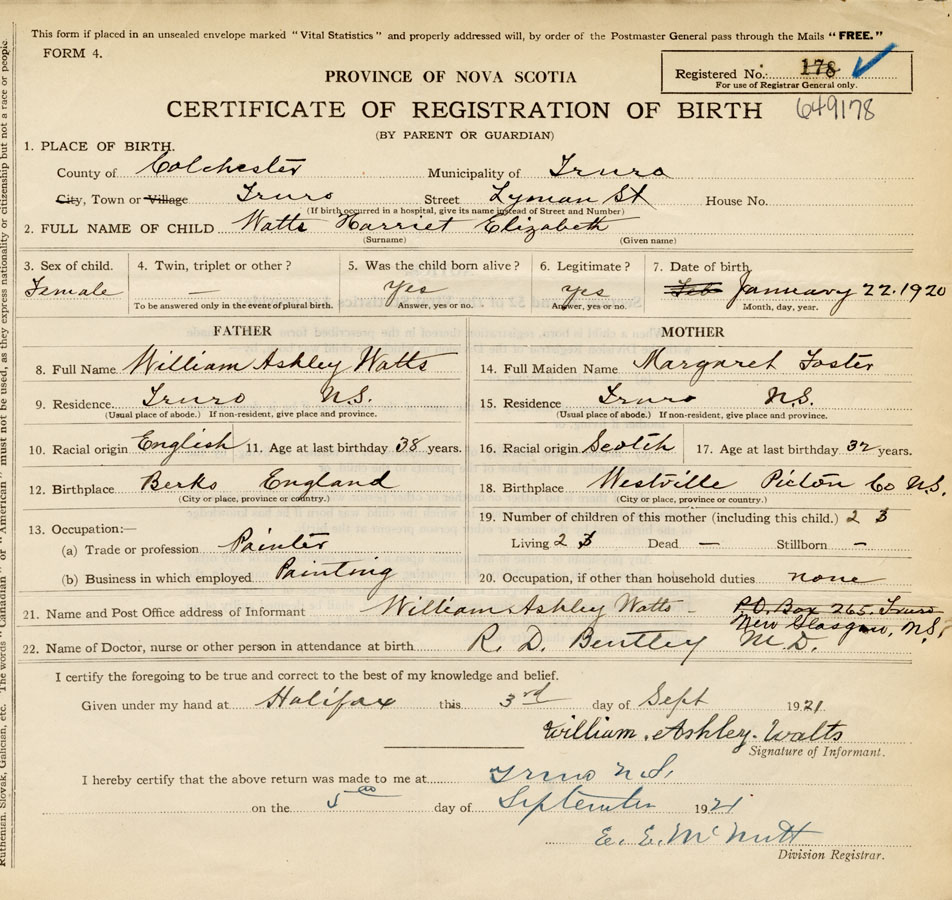 This form if placed in an unsealed envelope marked "Vital Statistics" and properly addressed will, by order of the Postmaster General pass through the Mails "FREE."
FORM 4.
Registered No. 178
For use of Registrar General only.
649178
PROVINCE OF NOVA SCOTIA
CERTIFICATE OF REGISTRATION OF BIRTH
(BY PARENT OR GUARDIAN)
1. PLACE OF BIRTH.
County of Colchester Municipality of Truro
City, Town or Village Truro Street Lyman St House No.
(If birth occurred in a hospital, give its name instead of Street and Number)
2. FULL NAME OF CHILD Watts Harriet Elizabeth
(Surname) (Given name)
3. Sex of child. 4. Twin, triplet or other? 5. Was the child born alive? 6. Legitimate? 7. Date of birth
Female — Yes yes Feb January 22. 1920
To be answered only in the event of plural birth. Answer, yes or no. Answer, yes or no. Month, day, year.
FATHER
8. Full Name William Ashley Watts
9. Residence Truro N.S.
(Usual place of abode.) If non-resident, give place and province.
10. Racial origin English 11. Age at last birthday 38 years.
12. Birthplace Berks England
(City or place, province or country.)
13. Occupation:—
(a) Trade or profession Painter
(b) Business in which employed Painting
MOTHER
14. Full Maiden Name Margaret Foster
15. Residence Truro N.S.
(Usual place of abode.) If non-resident, give place and province.
16. Racial origin Scotch 17. Age at last birthday 32 years.
18. Birthplace Westville Picton Co N.S.
(City or place, province or country.)
19. Number of children of this mother (including this child.) 2 3
Living 2 3 Dead — Stillborn —
20. Occupation, if other than household duties none
21. Name and Post Office address of Informant William Ashley Watts - P.O. Box 265. Truro
New Glasgow, N.S.
22. Name of Doctor, nurse or other person in attendance at birth. R. D. Bentley M.D.
I certify the foregoing to be true and correct to the best of my knowledge and belief.
Given under my hand at Halifax this 3rd day of Sept 1921.
William. Ashley. Watts
Signature of Informant.
I hereby certify that the above return was made to me at Truro N.S.
on the 5th day of September 1921
E. E. McNutt
Division Registrar.
Ruthenian, Slovak, Galician, etc. The words "Canadian" or "American" must not be used, as they express nationality or citizenship but not a race or people